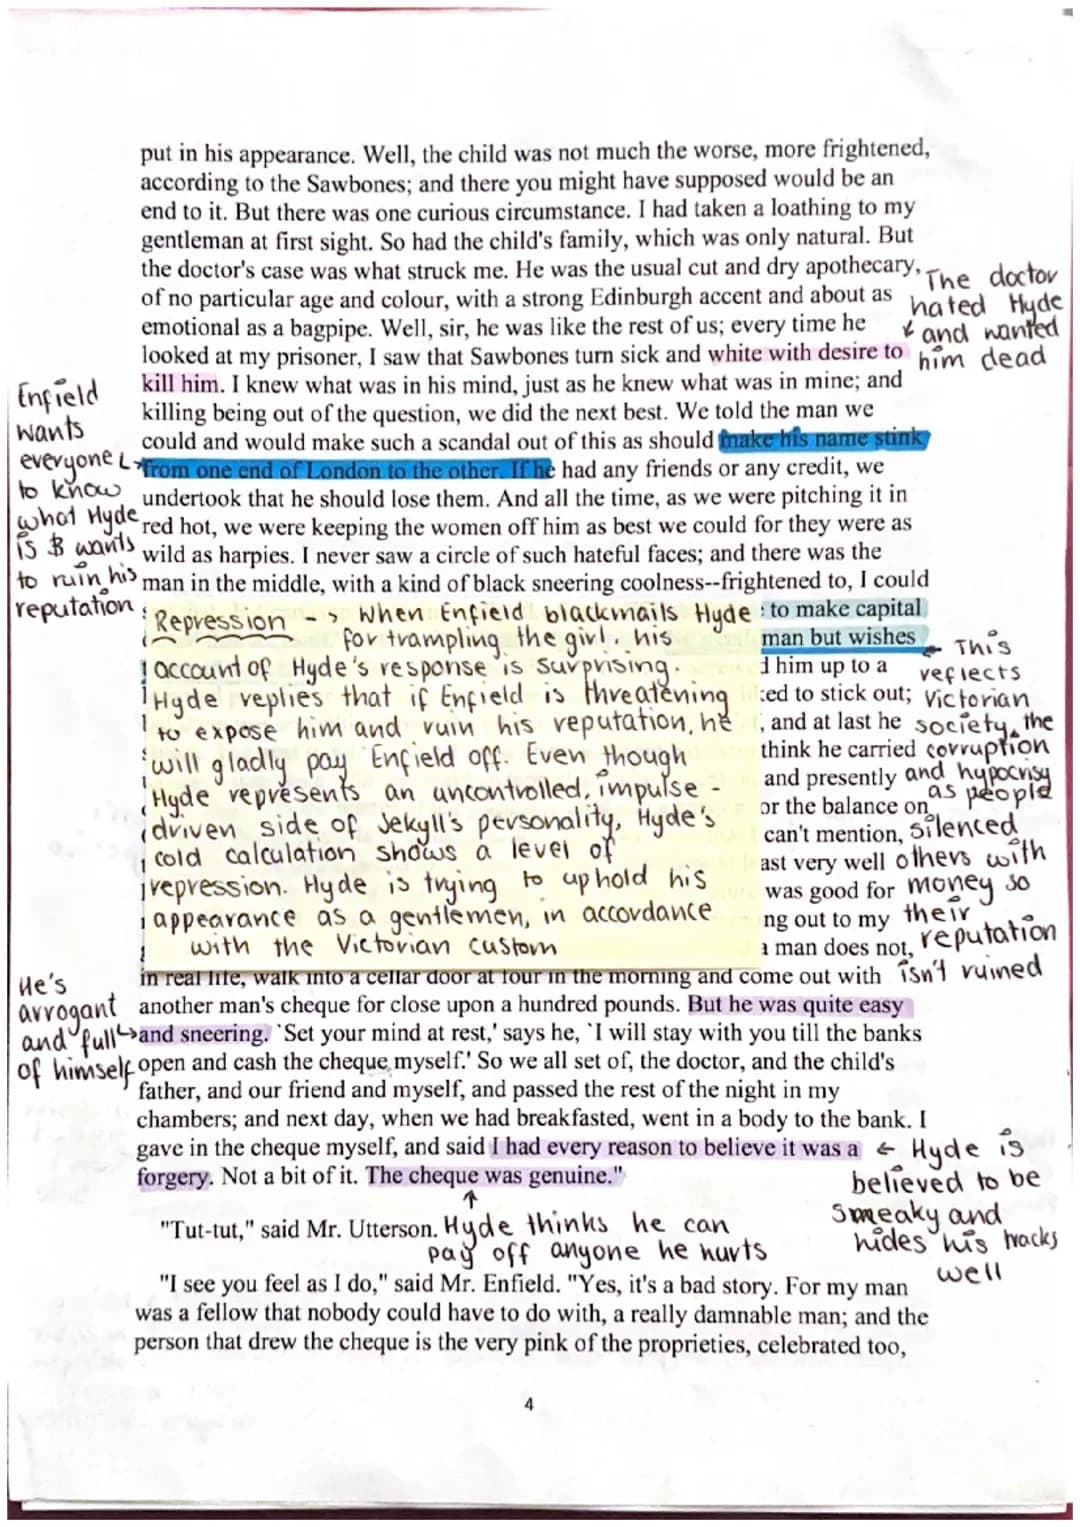 put in his appearance. Well, the child was not much the worse, more frightened,
according to the Sawbones; and there you might have supposed would be an
end to it. But there was one curious circumstance. I had taken a loathing to my
gentleman at first sight. So had the child's family, which was only natural. But
the doctor's case was what struck me. He was the usual cut and dry apothecary,
of no particular age and colour, with a strong Edinburgh accent and about as
emotional as a bagpipe. Well, sir, he was like the rest of us; every time he
looked at my prisoner, I saw that Sawbones turn sick and white with desire to
kill him. I knew what was in his mind, just as he knew what was in mine; and
killing being out of the question, we did the next best. We told the man we
could and would make such a scandal out of this as should make his name stink
from one end of London to the other. If he had any friends or any credit, we
undertook that he should lose them. And all the time, as we were pitching it in
red hot, we were keeping the women off him as best we could for they were as
wild as harpies. I never saw a circle of such hateful faces; and there was the
man in the middle, with a kind of black sneering coolness--frightened to, I could
The doctor
hated Hyde
and wanted
him dead
Enfield
wants
everyone
to know
what Hyde
is & wants
to ruin his
reputation
Repression -> When Enfield blackmails Hyde
for trampling the girl, his
account of Hyde's response is surprising.
Hyde replies that if Enfield is threatening
to expose him and ruin his reputation, he
will gladly pay Enfield off. Even though
Hyde represents an uncontrolled, impulse -
driven side of Jekyll's personality, Hyde's
cold calculation shows a level of
repression. Hyde is trying to uphold his
appearance as a gentlemen, in accordance
with the Victorian custom
to make capital
man but wishes
d him up to a
ced to stick out;
, and at last he
think he carried
and presently
or the balance on
can't mention,
ast very well
was good for
ng out to my
a man does not,
This
reflects
Victorian
society, the
corruption
and hypocrisy
as people
silenced
others with
money so
their
reputation
isn't ruined
in real life, walk into a cellar door at four in the morning and come out with
another man's cheque for close upon a hundred pounds. But he was quite easy
and sneering. `Set your mind at rest,' says he, `I will stay with you till the banks
open and cash the cheque myself.' So we all set of, the doctor, and the child's
father, and our friend and myself, and passed the rest of the night in my
chambers; and next day, when we had breakfasted, went in a body to the bank. I
gave in the cheque myself, and said I had every reason to believe it was a
forgery. Not a bit of it. The cheque was genuine."
He's
arrogant
and full
of himself
Hyde is
believed to be
sneaky and
hides his tracks
well
"Tut-tut," said Mr. Utterson.
Hyde thinks he can
pay off anyone he hurts
"I see you feel as I do," said Mr. Enfield. "Yes, it's a bad story. For my man
was a fellow that nobody could have to do with, a really damnable man; and the
person that drew the cheque is the very pink of the proprieties, celebrated too,
4